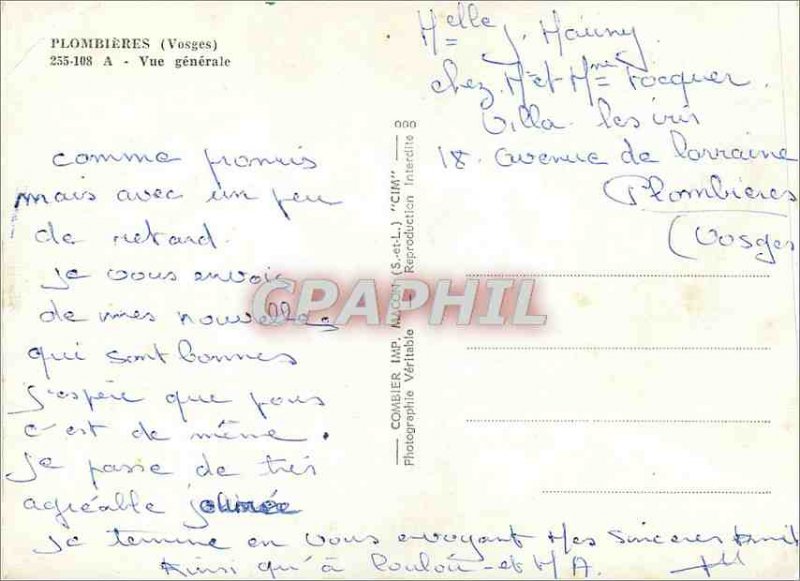 PLOMBIÈRES (Vosges)
255-108 A - Vue générale
comme promis
mais avec un peu
de retard.
je vous envois
de mes nouvelles
qui sont bonnes
j'espère que pous
c'est de même.
je passe de très
agréable journée
je termine en vous envoyant mes sinceres Amit
Ainsi qu'à loulou - et M A.
Melle J. Hauny
chez Mr et Mme Focquer.
Villa les iris
18. avenue de lorraine
Plombières
(Vosges
COMBIER IMP. MACON (S.-et-L.) "CIM"
Photographie Véritable - Reproduction Interdite
CPAPHIL